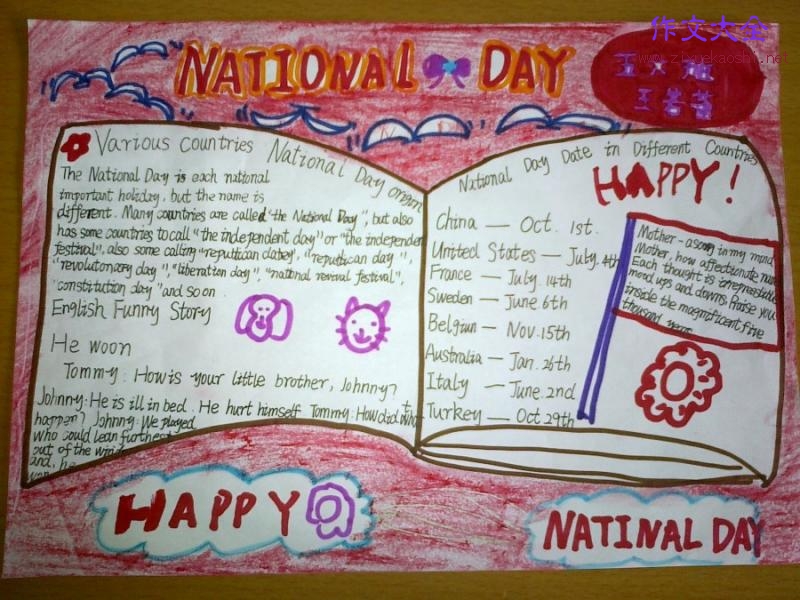 作文大全
www.zuowenkaoshi.net
NATIONAL DAY
王
王若
Various Countries National Day origin
The National Day is each national
important holiday, but the name is
different. Many countries are called "the National Day", but also
has some countries to call "the independent day" or "the independen
festival", also some calling "republican day", "republican day",
"revolutionary day", "liberation day", "national revival festival",
constitution day" and so on.
English Funny Story
He woon
Tommy: How is your little brother, Johnny?
Johnny: He is ill in bed. He hurt himself Tommy: How did that
happen? Johnny: We played
who could lean furthest
out of the window
and, he
National Day Date in Different Countries
HAPPY!
China — Oct. 1st.
United States — July. 4th
France — July. 14th
Sweden — June. 6th
Belgiun — Nov. 15th
Australia — Jan. 26th
Italy — June. 2nd
Turkey — Oct 29th
Mother - a song in my mind
Mother, how affectionate
Each thought is irrepressible
mend ups and downs. Praise you
inside the magnificent five
thousand years
HAPPY
NATINAL DAY